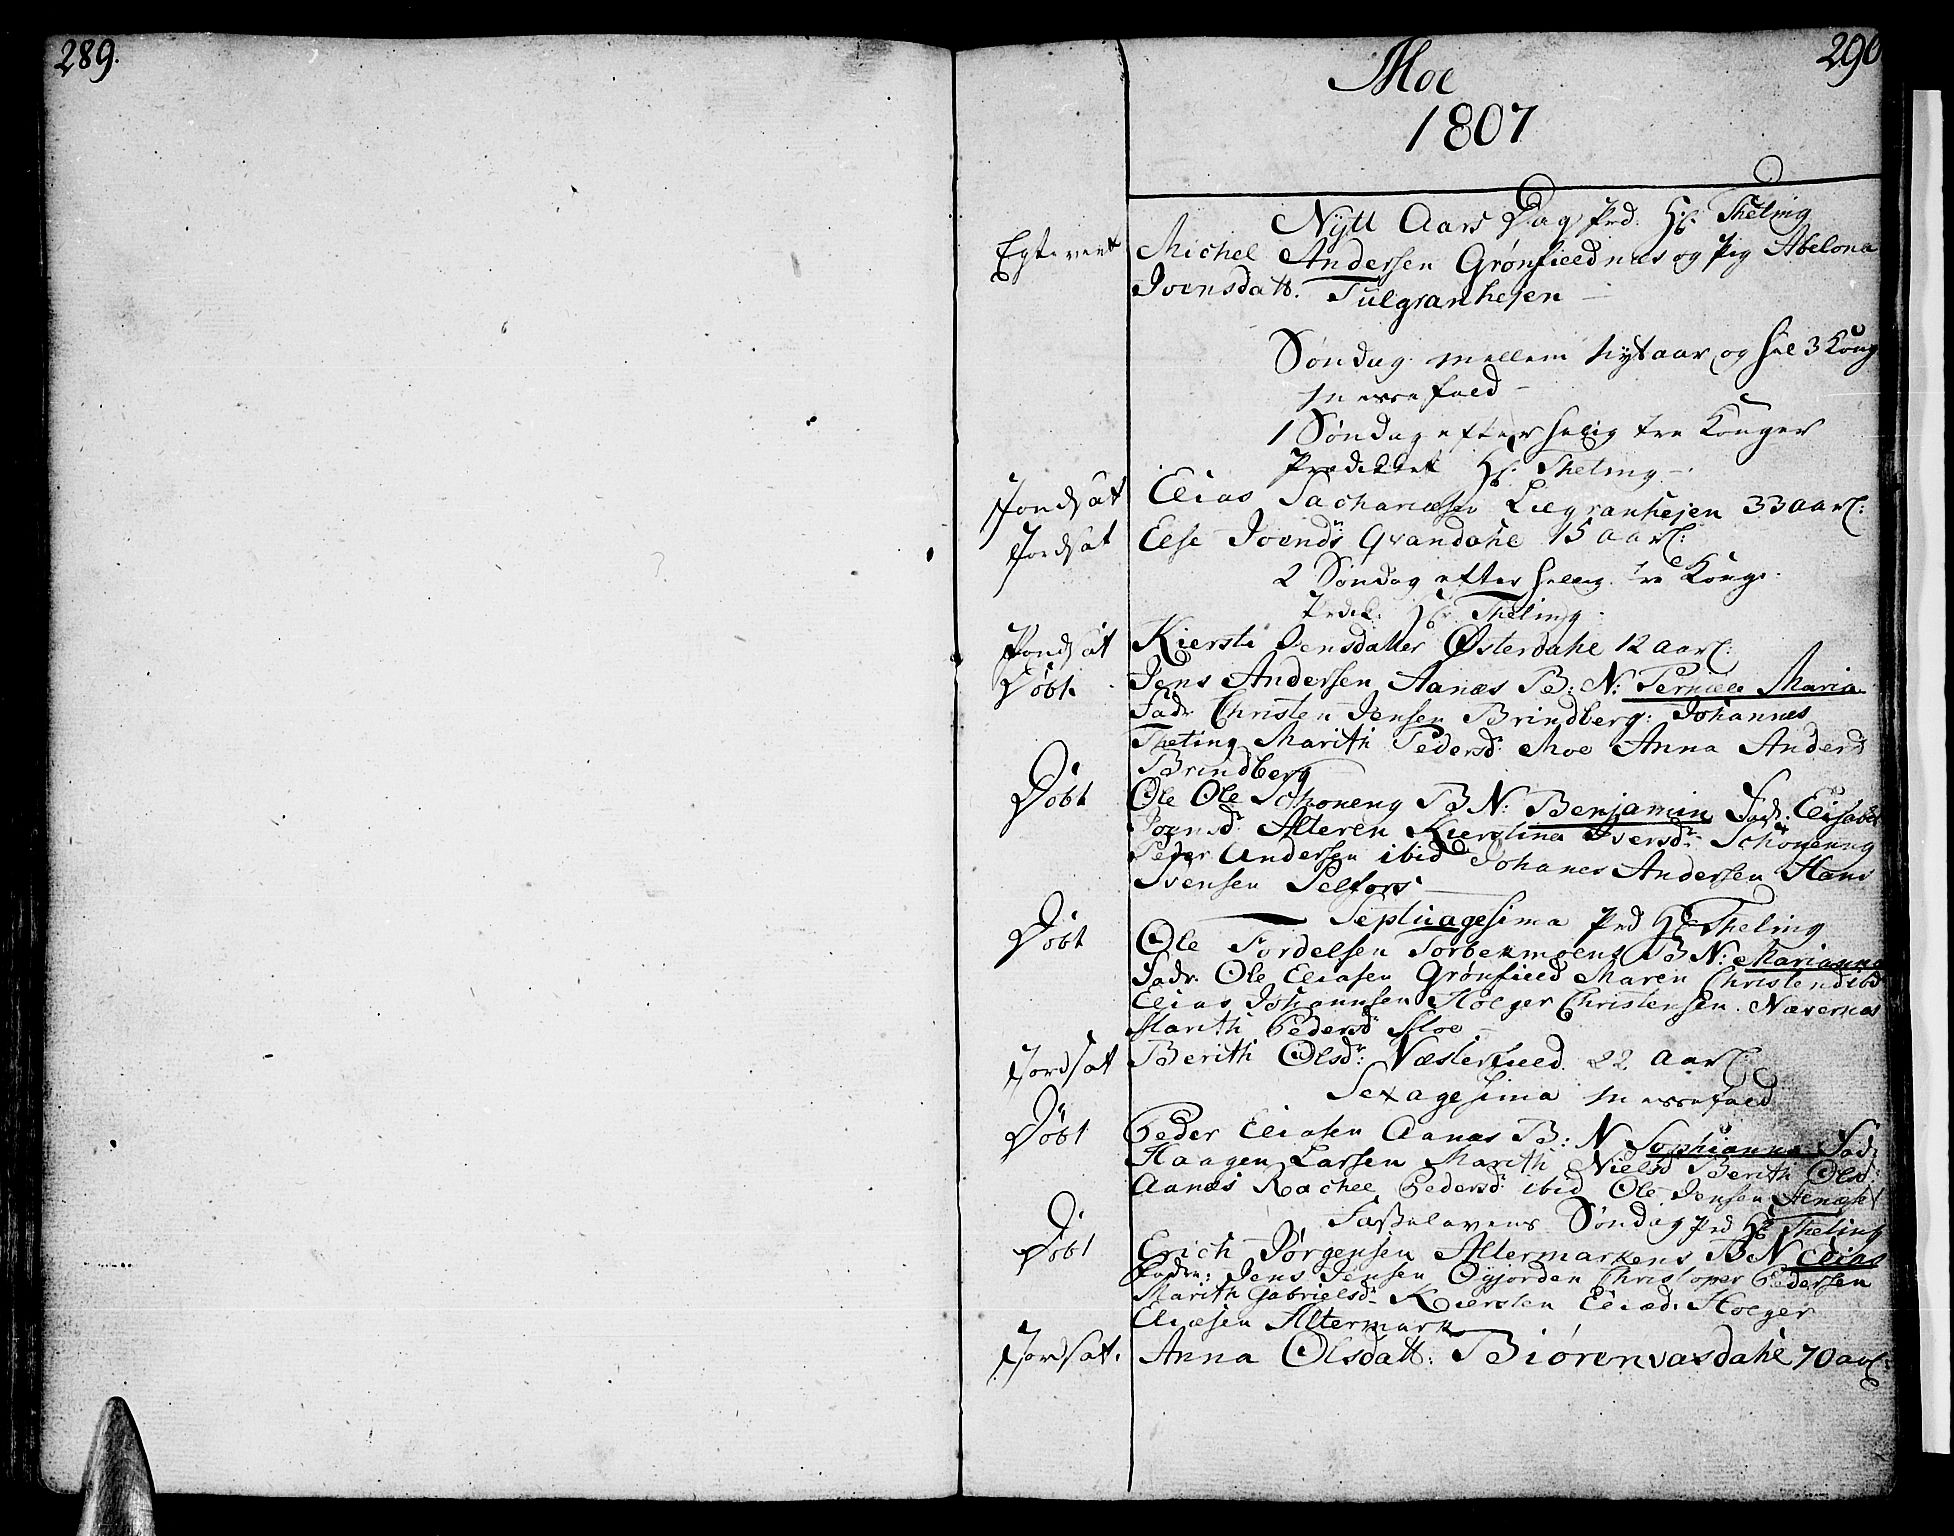 289.
290
Moe
1807
Nytt Aars Dag Prd. Hr. Theting
Egteviet Michel Andersen Grønfieldnæs og Pig Abelona
Joensdatt. Tulgranhejen
Søndag mellem nytaar og hel 3 Kong
messefald
1 Søndag efter hellig tre Konger
Prædiket Hr. Theting
Jordsat Elias Sachariæsen Lilgranhejen 33 aar
Jordsat Else Joensdr Grandahl 15 aar
2 Søndag efter hellig tre Konge
Prdik: Hr Theting
Jordsat Kiersti Jensdatter Østerdahl 12 aar
Døbt Jens Andersen Aanæs B: N: Pernæle Maria
Fadr Christen Jensen Brindberg: Johannes
Theting Marith Pedersd: Moe Anna Andersd
Brindberg
Døbt Ole Ole Schoneng B N: Benjamin Fadr: Elisabet
Joensd: Alteren Kierstina Iversdr Schoneng
Peder Andersen ibid Johanes Andersen Hans
Svensen Selfors
Septuagesima Prd Hr Theting
Døbt Ole Tordelsen Torbekmoens B N: Marianna
Fadr Ole Eliasen Grønfield Maren Christend ibd
Elias Johannsen Holger Christensen Nævernæs
Marith Pedersd Moe
Jordsat Berith Olsdr: Næsterfield 22 aar
Sexagesima messefald
Døbt Peder Eliasen Aanæs B: N Sophianna Fadr
Haagen Larsen Marith Nielsd Berith Olsd:
Aanæs Rachel Pedersd: ibid Ole Jensen
Fastelavens Søndag Prd Hr Theting
Døbt Erich Jørgensen Altermarkens B N Elias
Fadr: Jens Jensen Øyjorden Christopher Pedersen
Marith Gabrielsdr Kiersten Eliæd: Holger
Eliæsen Altermark
Jordsat. Anna Olsdatt: Biørenvasdahl 70 aar